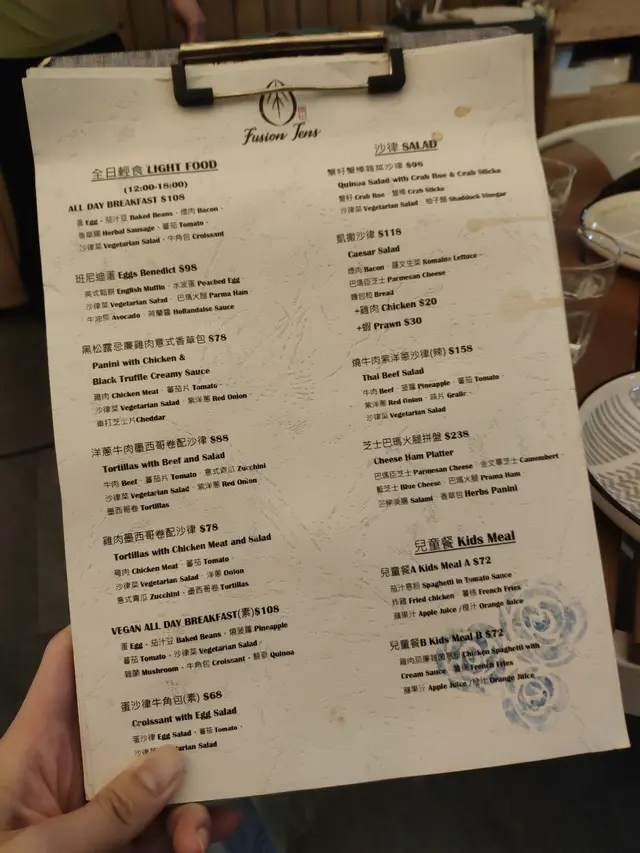 Fusion Jens
全日輕食 LIGHT FOOD
(12:00-18:00)
ALL DAY BREAKFAST $108
蛋 Egg、茄汁豆 Baked Beans、煙肉 Bacon、
香草腸 Herbal Sausage、蕃茄 Tomato、
沙律菜 Vegetarian Salad、牛角包 Croissant
班尼迪蛋 Eggs Benedict $98
英式鬆餅 English Muffin、水波蛋 Peached Egg
沙律菜 Vegetarian Salad、巴瑪火腿 Parma Ham
牛油果 Avocado、荷蘭醬 Hollandaise Sauce
黑松露忌廉雞肉意式香草包 $78
Panini with Chicken &
Black Truffle Creamy Sauce
雞肉 Chicken Meat、蕃茄片 Tomato、
沙律菜 Vegetarian Salad、紫洋蔥 Red Onion
車打芝士片Cheddar
洋蔥牛肉墨西哥卷配沙律 $88
Tortillas with Beef and Salad
牛肉 Beef、蕃茄片 Tomato、意式青瓜 Zucchini
沙律菜 Vegetarian Salad、紫洋蔥 Red Onion
墨西哥卷 Tortillas
雞肉墨西哥卷配沙律 $78
Tortillas with Chicken Meat and Salad
雞肉 Chicken Meat、蕃茄 Tomato、
沙律菜 Vegetarian Salad、洋蔥 Onion
意式青瓜 Zucchini、墨西哥卷 Tortillas
VEGAN ALL DAY BREAKFAST(素)$108
蛋 Egg、茄汁豆 Baked Beans、燒菠蘿 Pineapple
蕃茄 Tomato、沙律菜 Vegetarian Salad、
雜菌 Mushroom、牛角包 Croissant、藜麥 Quinoa
蛋沙律牛角包(素) $68
Croissant with Egg Salad
蛋沙律 Egg Salad、蕃茄 Tomato、
沙律菜 Vegetarian Salad
沙律 SALAD
蟹籽蟹棒雜菜沙律 $98
Quinoa Salad with Crab Roe & Crab Sticks
蟹籽 Crab Roe、蟹棒 Crab Sticks
沙律菜 Vegetarian Salad、柚子醋 Shaddock Vinegar
凱撒沙律 $118
Caesar Salad
煙肉 Bacon、羅文生菜 Romaine Lettuce
巴瑪臣芝士 Parmesan Cheese
麵包粒 Bread
+雞肉 Chicken $20
+蝦 Prawn $30
燒牛肉紫洋蔥沙律(辣) $158
Thai Beef Salad
牛肉 Beef、菠蘿 Pineapple、蕃茄 Tomato、
紫洋蔥 Red Onion、蒜片 Gralic、
沙律菜 Vegetarian Salad
芝士巴瑪火腿拼盤 $238
Cheese Ham Platter
巴瑪臣芝士 Parmesan Cheese、金文畢芝士 Camembert、
藍芝士 Blue Cheese、巴瑪火腿 Prama Ham
莎樂美腸 Salami、香草包 Herbs Panini
兒童餐 Kids Meal
兒童餐A Kids Meal A $72
茄汁意粉 Spaghetti in Tomato Sauce
炸雞 Fried chicken、薯條 French Fries
蘋果汁 Apple Juice /橙汁 Orange Juice
兒童餐B Kids Meal B $72
雞肉忌廉 Chicken Spaghetti with
Cream Sauce、薯條 French Fries
蘋果汁 Apple Juice /橙汁 Orange Juice